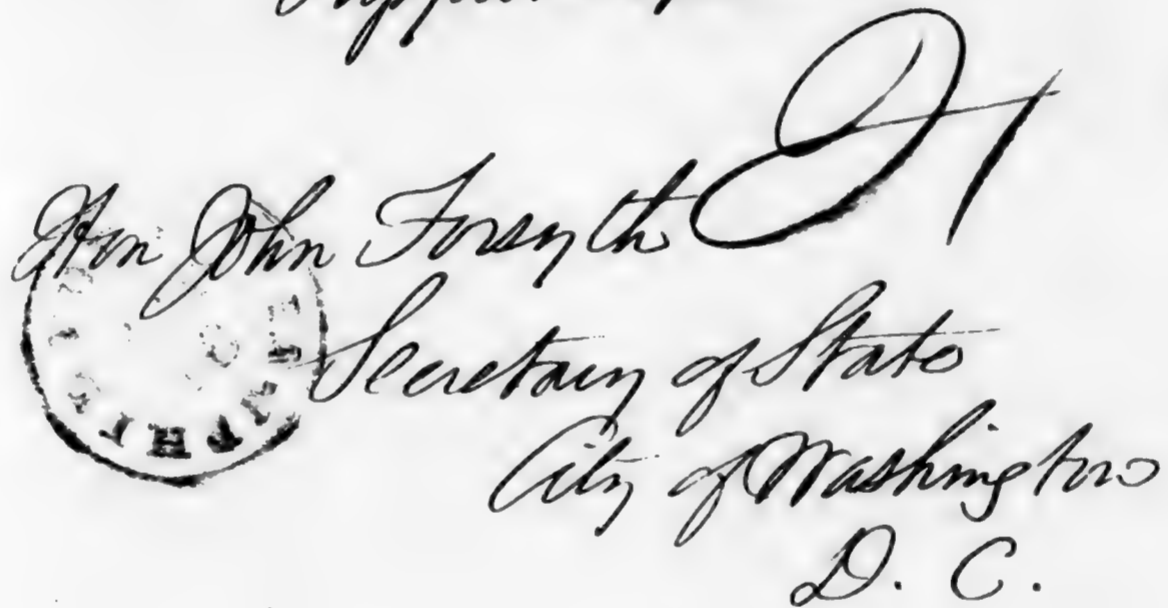 Hon John Forsyth
Secretary of State
City of Washington
D. C.